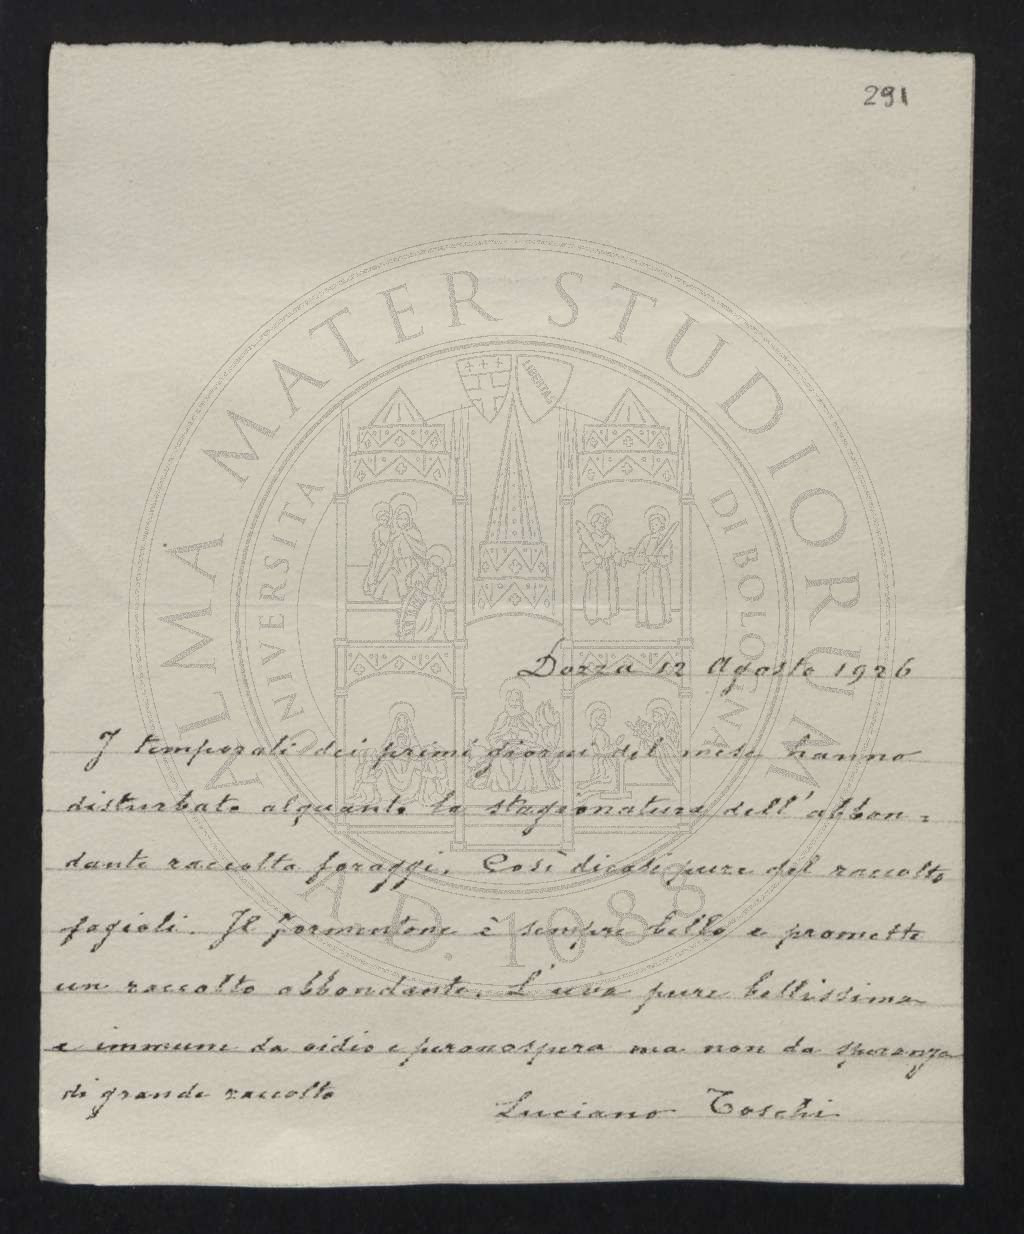 291
ALMA MATER STUDIORUM
UNIVERSITA DI BOLOGNA
LIBERTAS
A.D. 1088
Dozza 12 Agosto 1926
I temporali dei primi giorni del mese hanno
disturbato alquanto la stagionatura dell'abbon=
dante raccolta foraggi. Così dicasi pure del raccolto
fagioli. Il formentone è sempre bello e promette
un raccolto abbondante. L'uva pure bellissima
e immune da oidio e peronospera ma non da speranza
di grande raccolto
Luciano Toschi